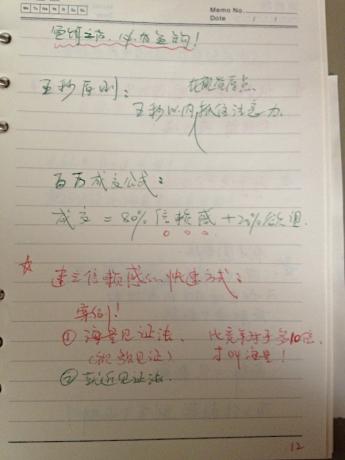 Mo Tu We Th Fr Sa Su
Memo No.
Date / /
重赏之下，必有金句！
五秒原则：
在现场有点
五秒以内抓住注意力
百万成交公式：
成交 = 80% 信赖感 + 20% 欲望.
☆ 建立信赖感的快速方式：
案例！
① 海量见证法、 比竞争对手多10倍、
(视频见证) 才叫海量！
② 就近见证法.
12